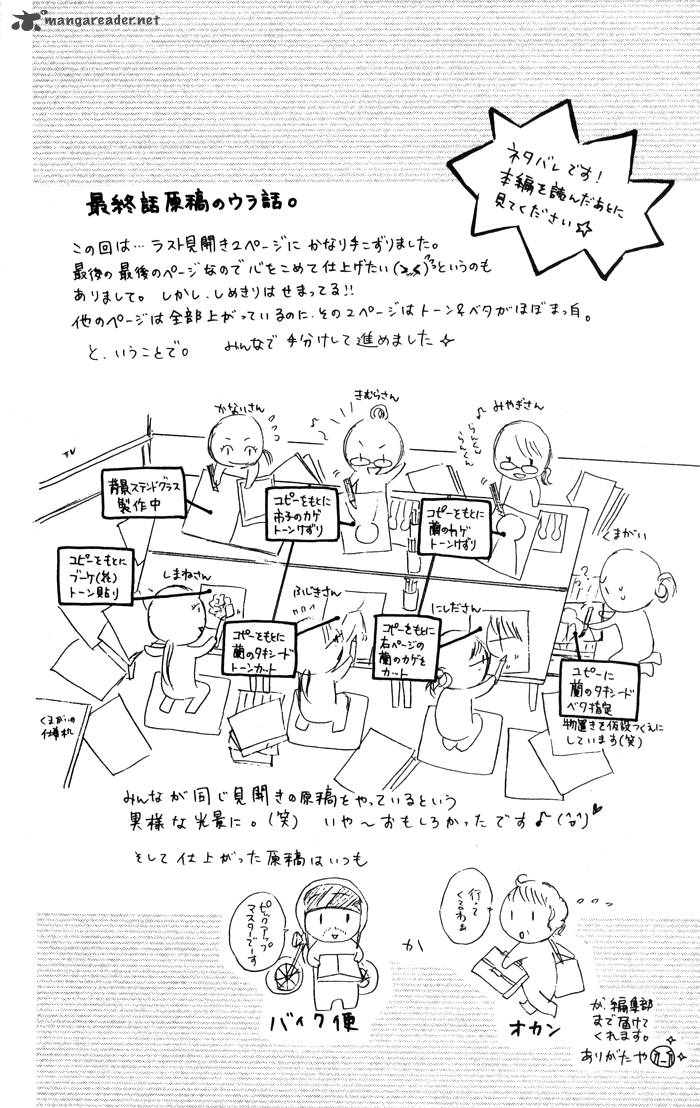 mangareader.net
ネタバレです!
本編を読んだあとに
見てください☆
最終話原稿のウラ話。
この回は…ラスト見開き2ページに かなり手こずりました。
最後の最後のページなので心をこめて仕上げたい というのも
ありまして。しかし、しめきりはせまってる!!
他のページは全部上がっているのに、その2ページはトーン&ベタがほぼまっ白。
と、いうことで。 みんなで手分けして進めました☆
かないさん
きむらさん
みやぎさん
らんらん
らんらん
TV
背景ステンドグラス
製作中
コピーをもとに
市子のカゲ
トーンけずり
コピーをもとに
蘭のカゲ
トーンけずり
くまがい
コピーをもとに
ブーケ(花)
トーン貼り
しまねさん
ふじきさん
カリカリ
にしださん
コピーをもとに
蘭のタキシード
トーンカット
コピーをもとに
右ページの
蘭のカゲを
カット
コピーに
蘭のタキシード
ベタ指定
物置きを仮設つくえに
しています(笑)
くまがいの
仕事机
みんなが同じ見開きの原稿をやっているという
異様な光景に。(笑) いや〜おもしろかったです♪
そして仕上がった原稿はいつも
ピックアップ
マスターです
バイク便
か
行って
くるわぁ
オカン
が、編集部
まで届けて
くれます。
ありがたや